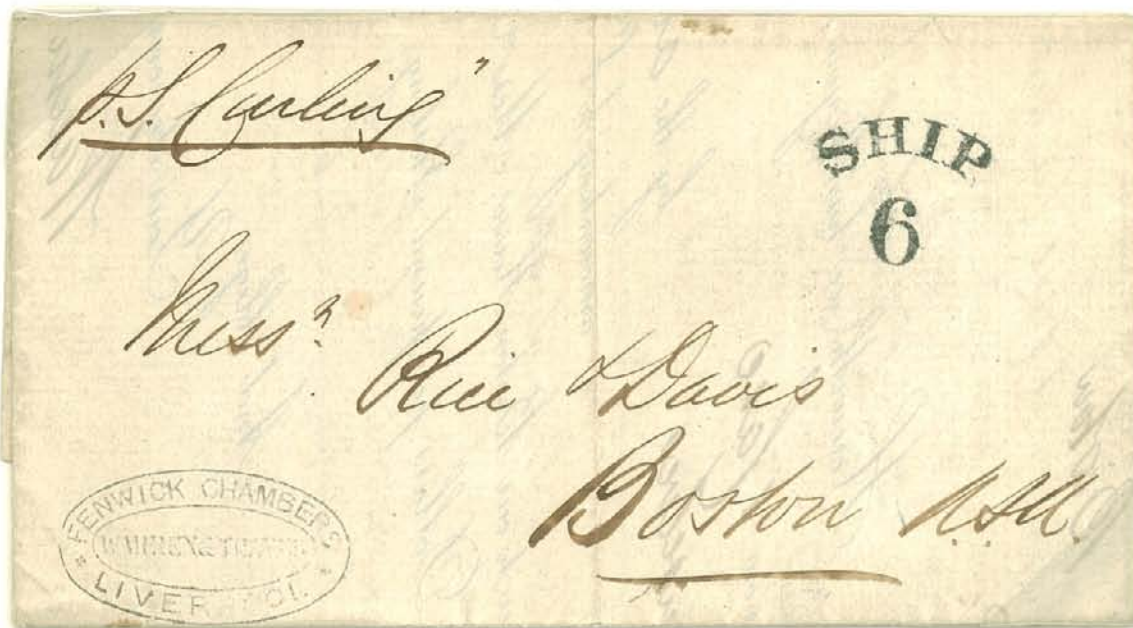 p. S. Curling"
SHIP
6
Mess.rs
Rice & Davis
Boston U.S.A.
FENWICK CHAMBERS
LIVERPOOL